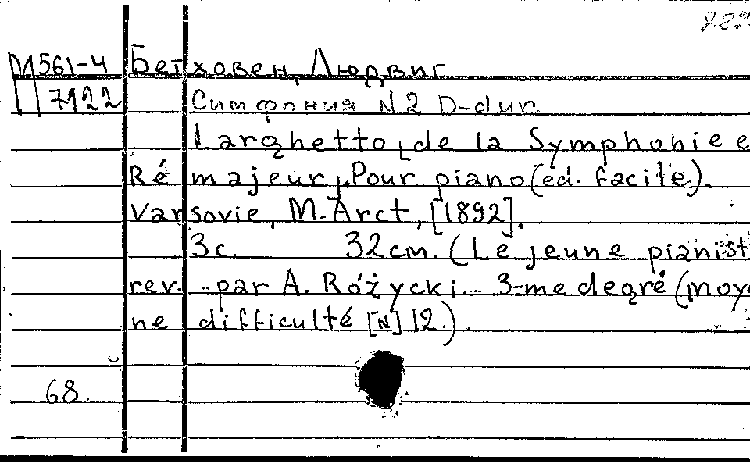 М561-4 Бетховен, Людвиг
7122 Симфония N2 D-dur.
Larghetto, de la Symphonie e
Ré majeur, Pour piano (éd. facile).
Varsovie, M. Arct, [1892].
3с. 32cm. (Le jeune pianist
rev. par A. Różycki. 3-me degré (moye
ne difficulté [N] 12.)
68.